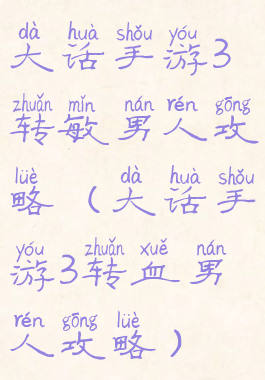 dà huà shǒu yóu
大话手游3
zhuǎn mǐn nán rén gōng
转敏男人攻
lüè dà huà shǒu
略（大话手
yóu zhuǎn xuě nán
游3转血男
rén gōng lüè
人攻略）